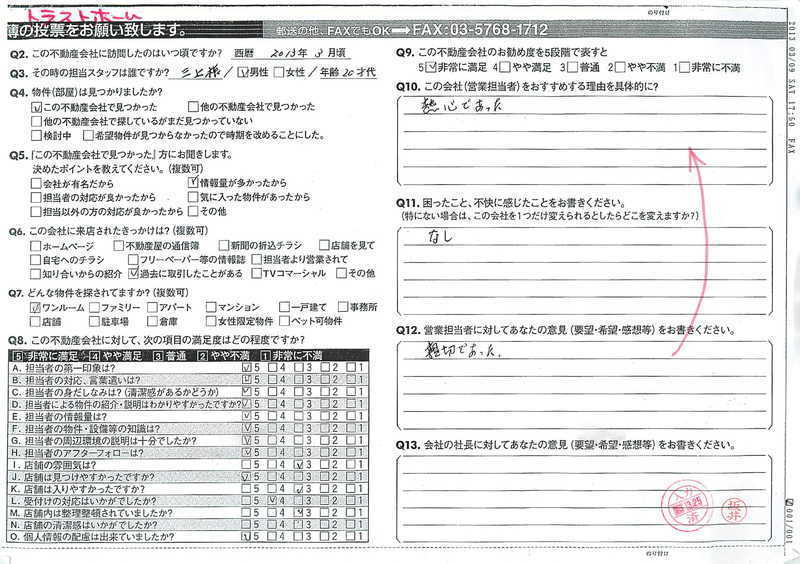 トラストホーム
簿の投票をお願い致します。
郵送の他、FAXでもOK FAX:03-5768-1712
のり付け
Q2. この不動産会社に訪問したのはいつ頃ですか? 西暦 2013年 3月頃
Q3. その時の担当スタッフは誰ですか? 三上様 / ☑男性 □女性 / 年齢 20才代
Q4. 物件(部屋)は見つかりましたか?
☑この不動産会社で見つかった □他の不動産会社で見つかった
□他の不動産会社で探しているがまだ見つかっていない
□検討中 □希望物件が見つからなかったので時期を改めることにした。
Q5. 『この不動産会社で見つかった』方にお聞きします。
決めたポイントを教えてください。(複数可)
□会社が有名だから ☑情報量が多かったから
□担当者の対応が良かったから □気に入った物件があったから
□担当以外の方の対応が良かったから □その他
Q6. この会社に来店されたきっかけは?(複数可)
□ホームページ □不動産屋の通信簿 □新聞の折込チラシ □店舗を見て
□自宅へのチラシ □フリーペーパー等の情報誌 □担当者より営業されて
□知り合いからの紹介 ☑過去に取引したことがある □TVコマーシャル □その他
Q7. どんな物件を探されてますか?(複数可)
☑ワンルーム □ファミリー □アパート □マンション □一戸建て □事務所
□店舗 □駐車場 □倉庫 □女性限定物件 □ペット可物件
Q8. この不動産会社に対して、次の項目の満足度はどの程度ですか?
5 非常に満足 4 やや満足 3 普通 2 やや不満 1 非常に不満
A. 担当者の第一印象は? ☑5 □4 □3 □2 □1
B. 担当者の対応、言葉遣いは? ☑5 □4 □3 □2 □1
C. 担当者の身だしなみは?(清潔感があるかどうか) ☑5 □4 □3 □2 □1
D. 担当者による物件の紹介・説明はわかりやすかったですか? ☑5 □4 □3 □2 □1
E. 担当者の情報量は? ☑5 □4 □3 □2 □1
F. 担当者の物件・設備等の知識は? ☑5 □4 □3 □2 □1
G. 担当者の周辺環境の説明は十分でしたか? ☑5 □4 □3 □2 □1
H. 担当者のアフターフォローは? ☑5 □4 □3 □2 □1
I. 店舗の雰囲気は? □5 □4 ☑3 □2 □1
J. 店舗は見つけやすかったですか? ☑5 □4 □3 □2 □1
K. 店舗は入りやすかったですか? □5 □4 ☑3 □2 □1
L. 受付けの対応はいかがでしたか? □5 ☑4 □3 □2 □1
M. 店舗内は整理整頓されていましたか? □5 □4 ☑3 □2 □1
N. 店舗の清潔感はいかがでしたか? □5 □4 □3 □2 □1
O. 個人情報の配慮は出来ていましたか? ☑5 □4 □3 □2 □1
Q9. この不動産会社のお勧め度を5段階で表すと
5☑非常に満足 4□やや満足 3□普通 2□やや不満 1□非常に不満
Q10. この会社(営業担当者)をおすすめする理由を具体的に?
熱心であった
Q11. 困ったこと、不快に感じたことをお書きください。
(特にない場合は、この会社を1つだけ変えられるとしたらどこを変えますか?)
なし
Q12. 営業担当者に対してあなたの意見(要望・希望・感想等)をお書きください。
親切であった。
Q13. 会社の社長に対してあなたの意見(要望・希望・感想等)をお書きください。
入力
済
坂井
のり付け
2013 03/09 SAT 17:50 FAX
001/001